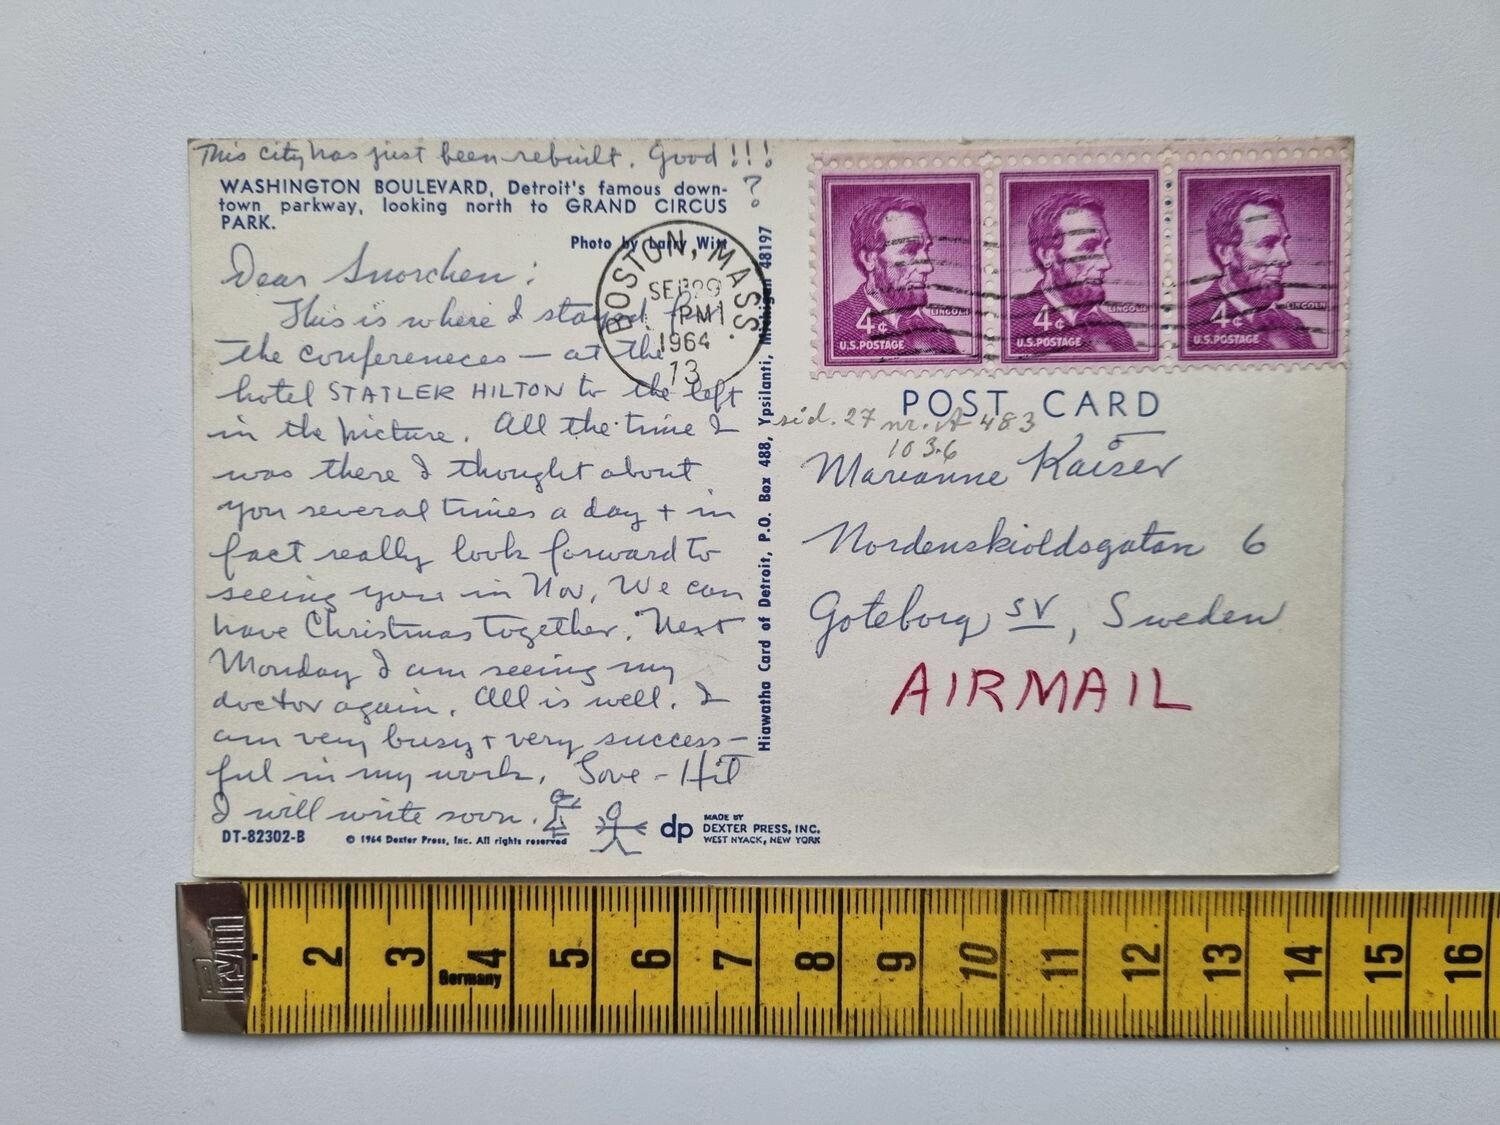 This city has just been rebuilt. Good!!!
?
WASHINGTON BOULEVARD, Detroit's famous down-
town parkway, looking north to GRAND CIRCUS
PARK.
Photo by Larry Witt
Dear Snorchen:
This is where I stayed for
the conferences — at the
hotel STATLER HILTON to the left
in the picture. All the time I
was there I thought about
you several times a day + in
fact really look forward to
seeing you in Nov. We can
have Christmas together. Next
Monday I am seeing my
doctor again. All is well. I
am very busy + very success-
ful in my work. Love - Hil
I will write soon.
DT-82302-B
© 1964 Dexter Press, Inc. All rights reserved
dp
MADE BY
DEXTER PRESS, INC.
WEST NYACK, NEW YORK
Hiawatha Card of Detroit, P.O. Box 488, Ypsilanti, Michigan 48197
BOSTON, MASS.
SEP 29
PM
1964
13
4¢
LINCOLN
U.S. POSTAGE
4¢
LINCOLN
U.S. POSTAGE
4¢
LINCOLN
U.S. POSTAGE
POST CARD
sid. 27 nr. A 483
1036
Marianne Kaiser
Nordenskioldsgatan 6
Goteborg SV, Sweden
AIRMAIL
Prym
2 3 4 5 6 7 8 9 10 11 12 13 14 15 16
Germany